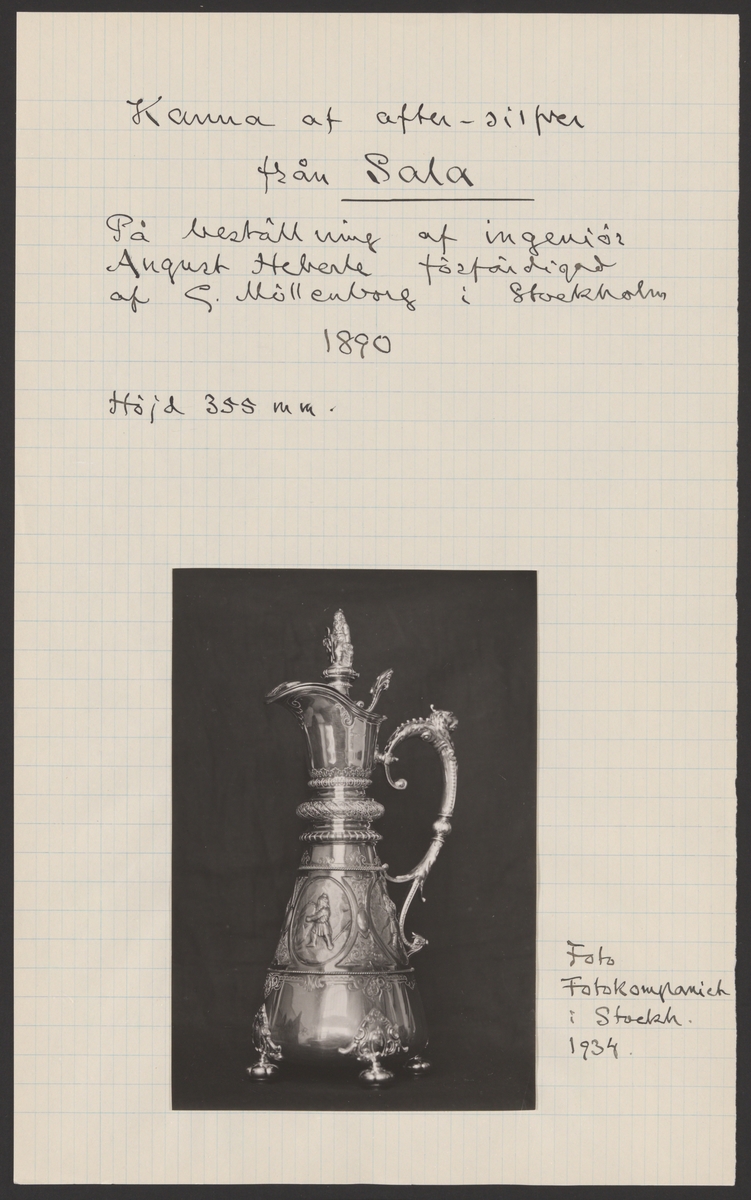 Kanna af after-silfver
från Sala
På beställning af ingeniör
August Heberle förfärdigad
af G. Möllenborg i Stockholm
1890
Höjd 355 mm.
Foto
Fotokompaniet
i Stockh.
1934.